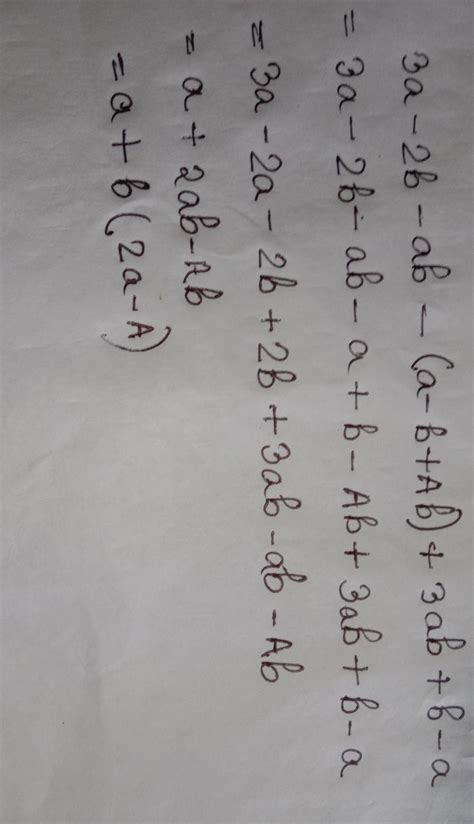 3a - 2b - ab - (a - b + Ab) + 3ab + b - a
= 3a - 2b - ab - a + b - Ab + 3ab + b - a
= 3a - 2a - 2b + 2b + 3ab - ab - Ab
= a + 2ab - Ab
= a + b (2a - A)